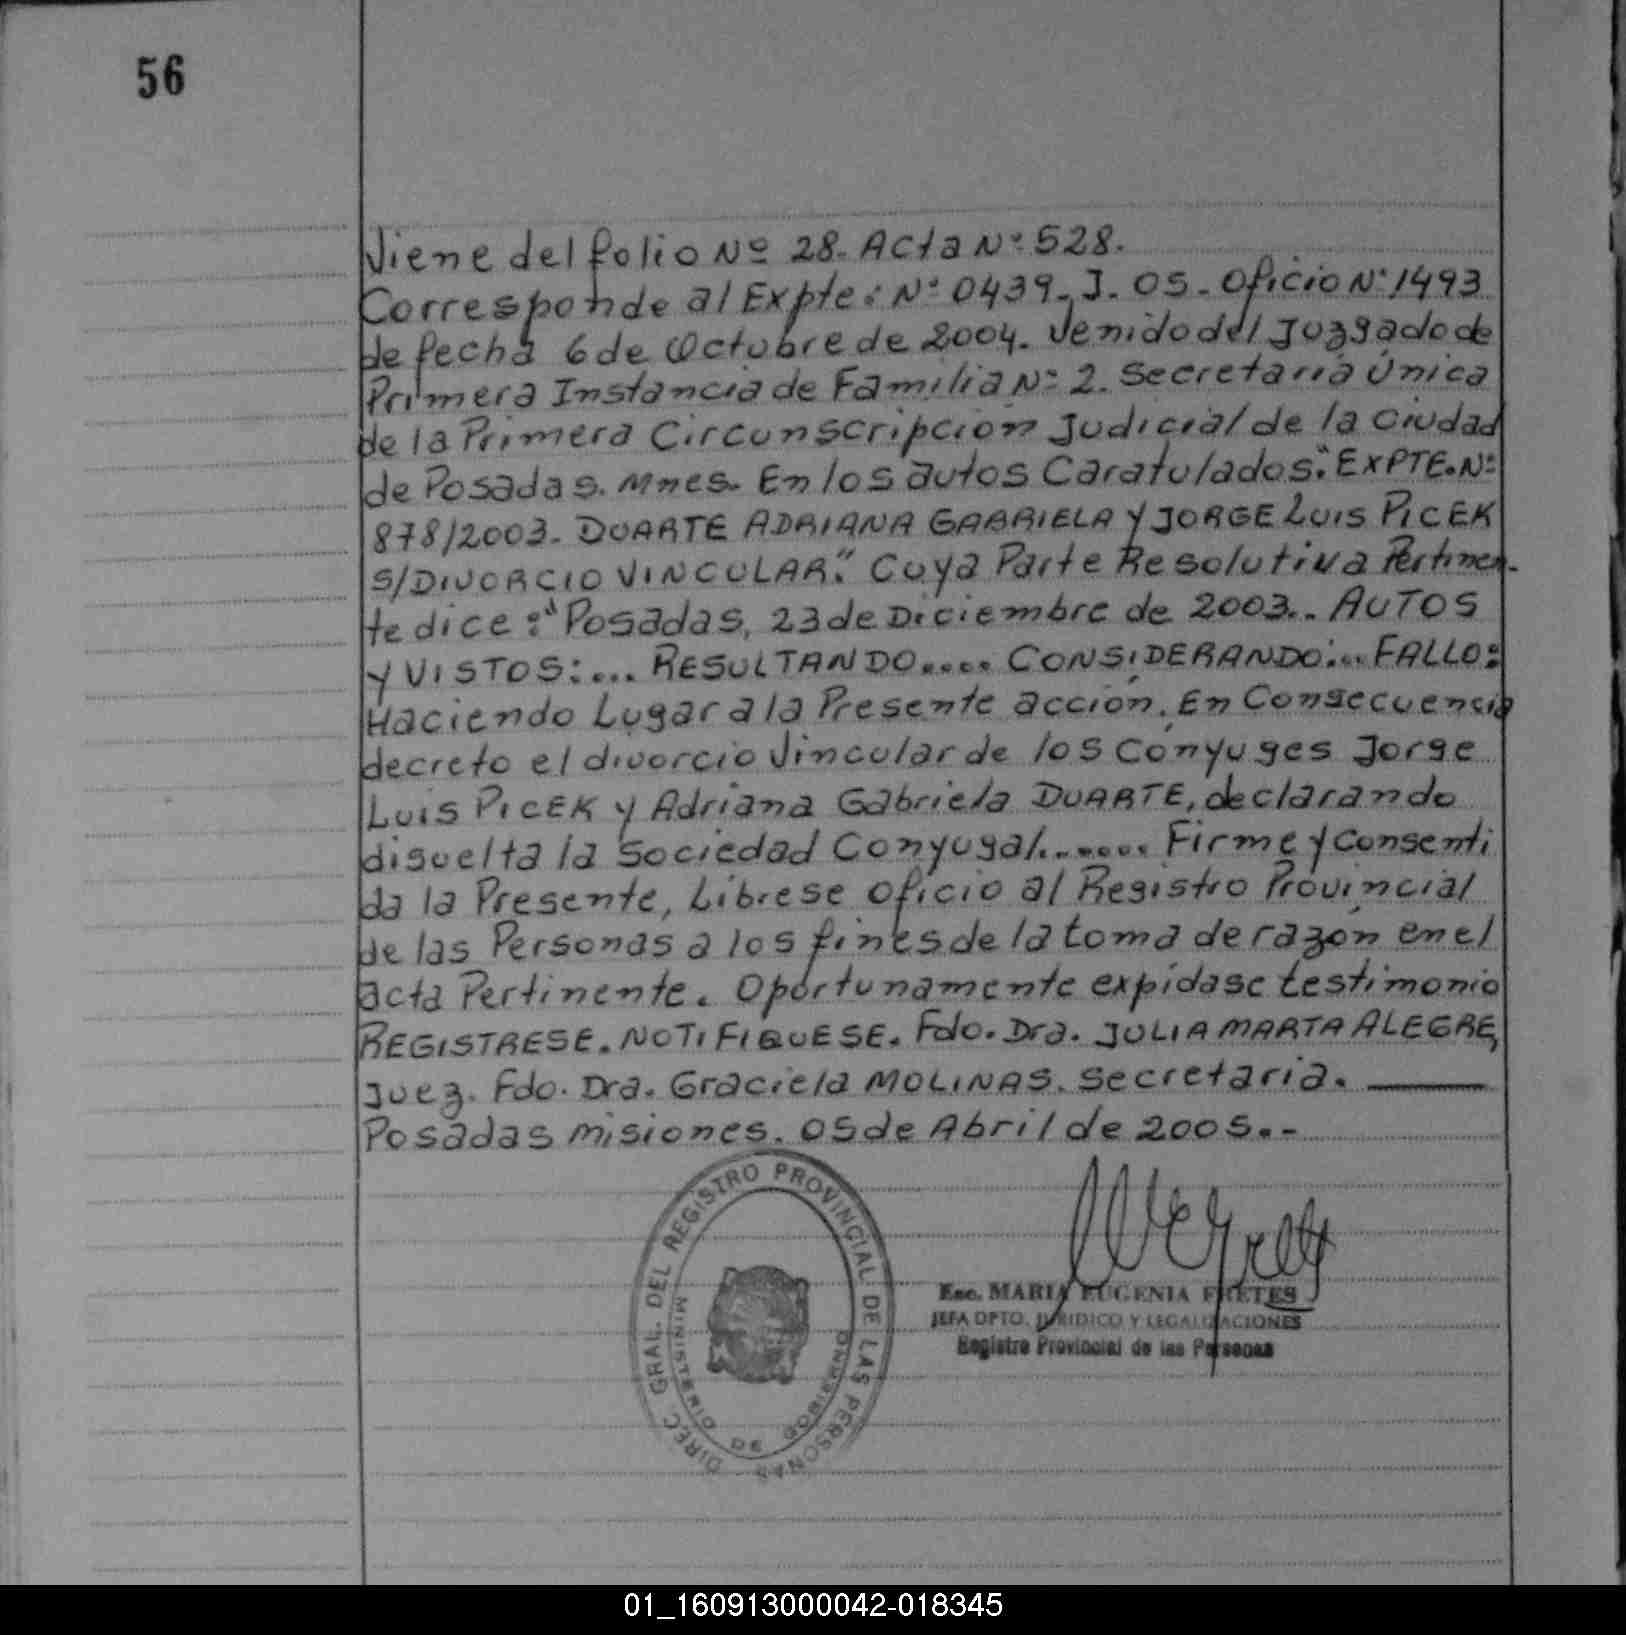 56
Viene del folio Nº 28. Acta Nº 528.
Corresponde al Expte: Nº 0439. J. 05. Oficio Nº 1493
de fecha 6 de Octubre de 2004. Venido del Juzgado de
Primera Instancia de Familia Nº 2. Secretaria Única
de la Primera Circunscripción Judicial de la Ciudad
de Posadas. Mnes. En los autos Caratulados: "EXPTE. Nº
878/2003. DUARTE ADRIANA GABRIELA Y JORGE LUIS PICEK
S/DIVORCIO VINCULAR." Cuya Parte Resolutiva Pertinen-
te dice: "Posadas, 23 de Diciembre de 2003.. AUTOS
Y VISTOS:... RESULTANDO.... CONSIDERANDO:... FALLO:
Haciendo Lugar a la Presente acción. En Consecuencia
decreto el divorcio Vincular de los Cónyuges Jorge
Luis PICEK y Adriana Gabriela DUARTE, declarando
disuelta la Sociedad Conyugal....... Firme y Consenti
da la Presente, Líbrese oficio al Registro Provincial
de las Personas a los fines de la toma de razón en el
acta Pertinente. Oportunamente expídase testimonio
REGISTRESE. NOTIFIQUESE. Fdo. Dra. JULIA MARTA ALEGRE,
Juez. Fdo. Dra. Graciela MOLINAS. Secretaria.
Posadas Misiones. 05 de Abril de 2005.-
DIREC. GRAL. DEL REGISTRO PROVINCIAL DE LAS PERSONAS
MINISTERIO DE GOBIERNO
Esc. MARIA EUGENIA FRETES
JEFA DPTO. JURIDICO Y LEGALIZACIONES
Registro Provincial de las Personas
01_160913000042-018345